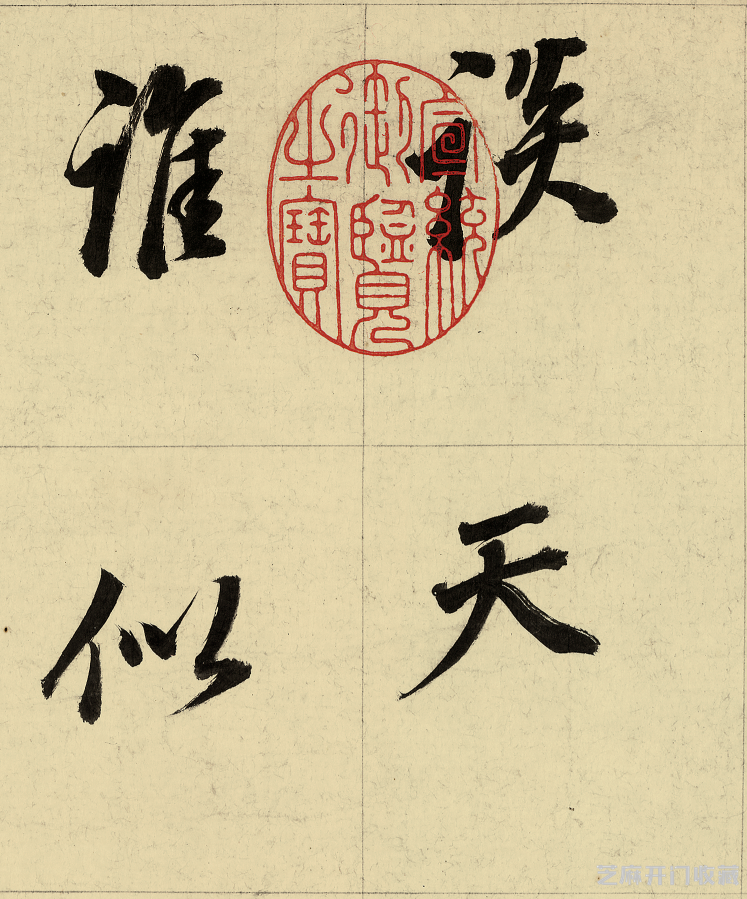 談天
誰似
宣統
御覽
之寶
芝麻开门收藏